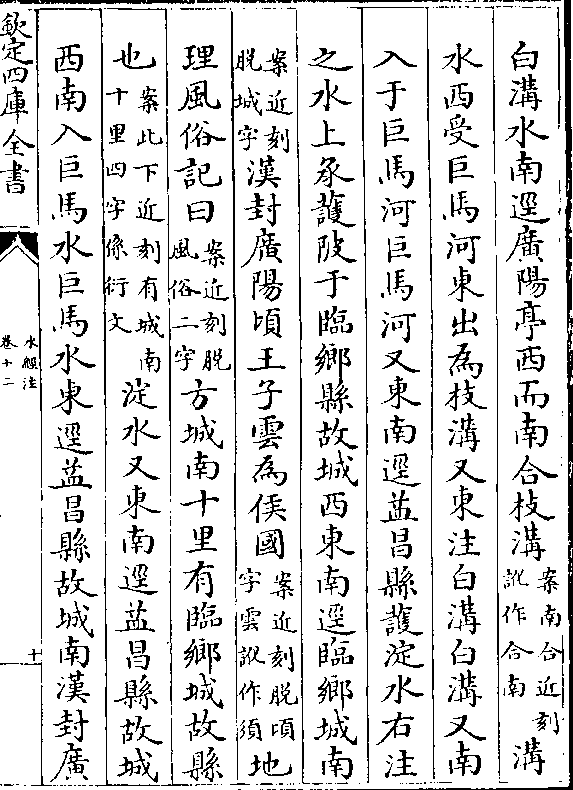 白溝水南逕廣陽亭西而南合枝溝案南合近刻訛作合南溝
水西受巨馬河東出為枝溝又東注白溝白溝又南
入于巨馬河巨馬河又東南逕益昌縣䕶淀水右注
之水上承䕶陂于臨鄉縣故城西東南逕臨鄉城南
案近刻脱城字漢封廣陽頃王子雲為侯國案近刻脱頃字雲訛作須地
理風俗記曰案近刻脱風俗二字方城南十里有臨鄉城故縣
也案此下近刻有城南十里四字係衍文淀水又東南逕益昌縣故城
西南入巨馬水巨馬水東逕益昌縣故城南漢封廣
欽定四庫全書
水經注
卷十二
十